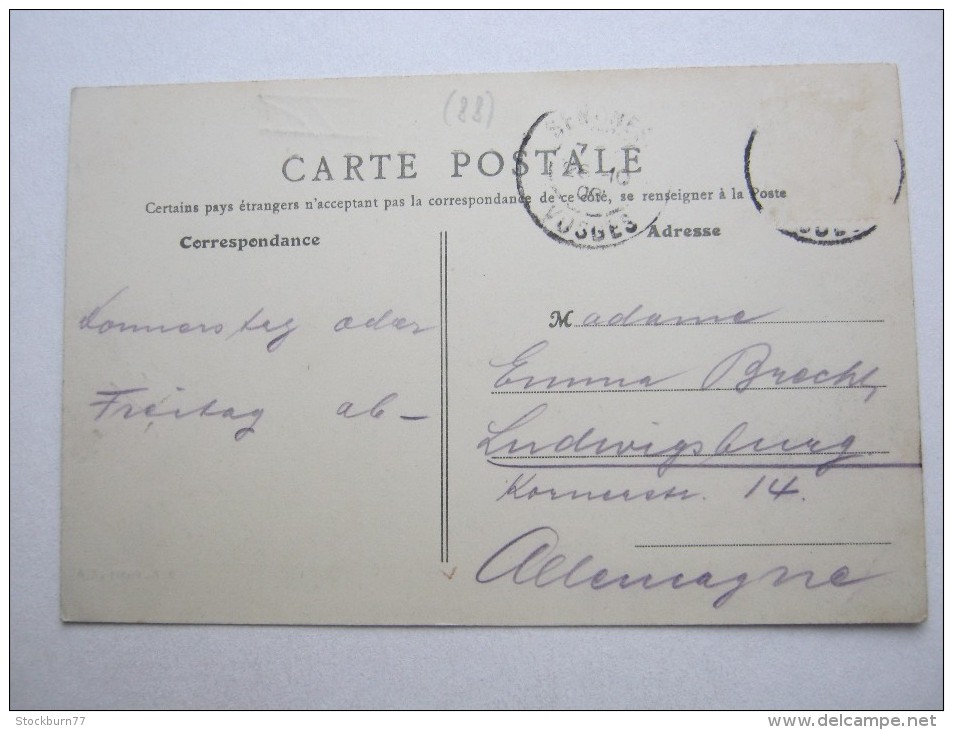 (88)
CARTE POSTALE
Certains pays étrangers n'acceptant pas la correspondance de ce côté, se renseigner à la Poste
Correspondance
Adresse
VOSGES
Donnerstag oder
Freitag ab–
Madame
Emma Brecht,
Ludwigsburg
Kornerstr. 14.
Allemagne
Stockburn77
www.delcampe.net